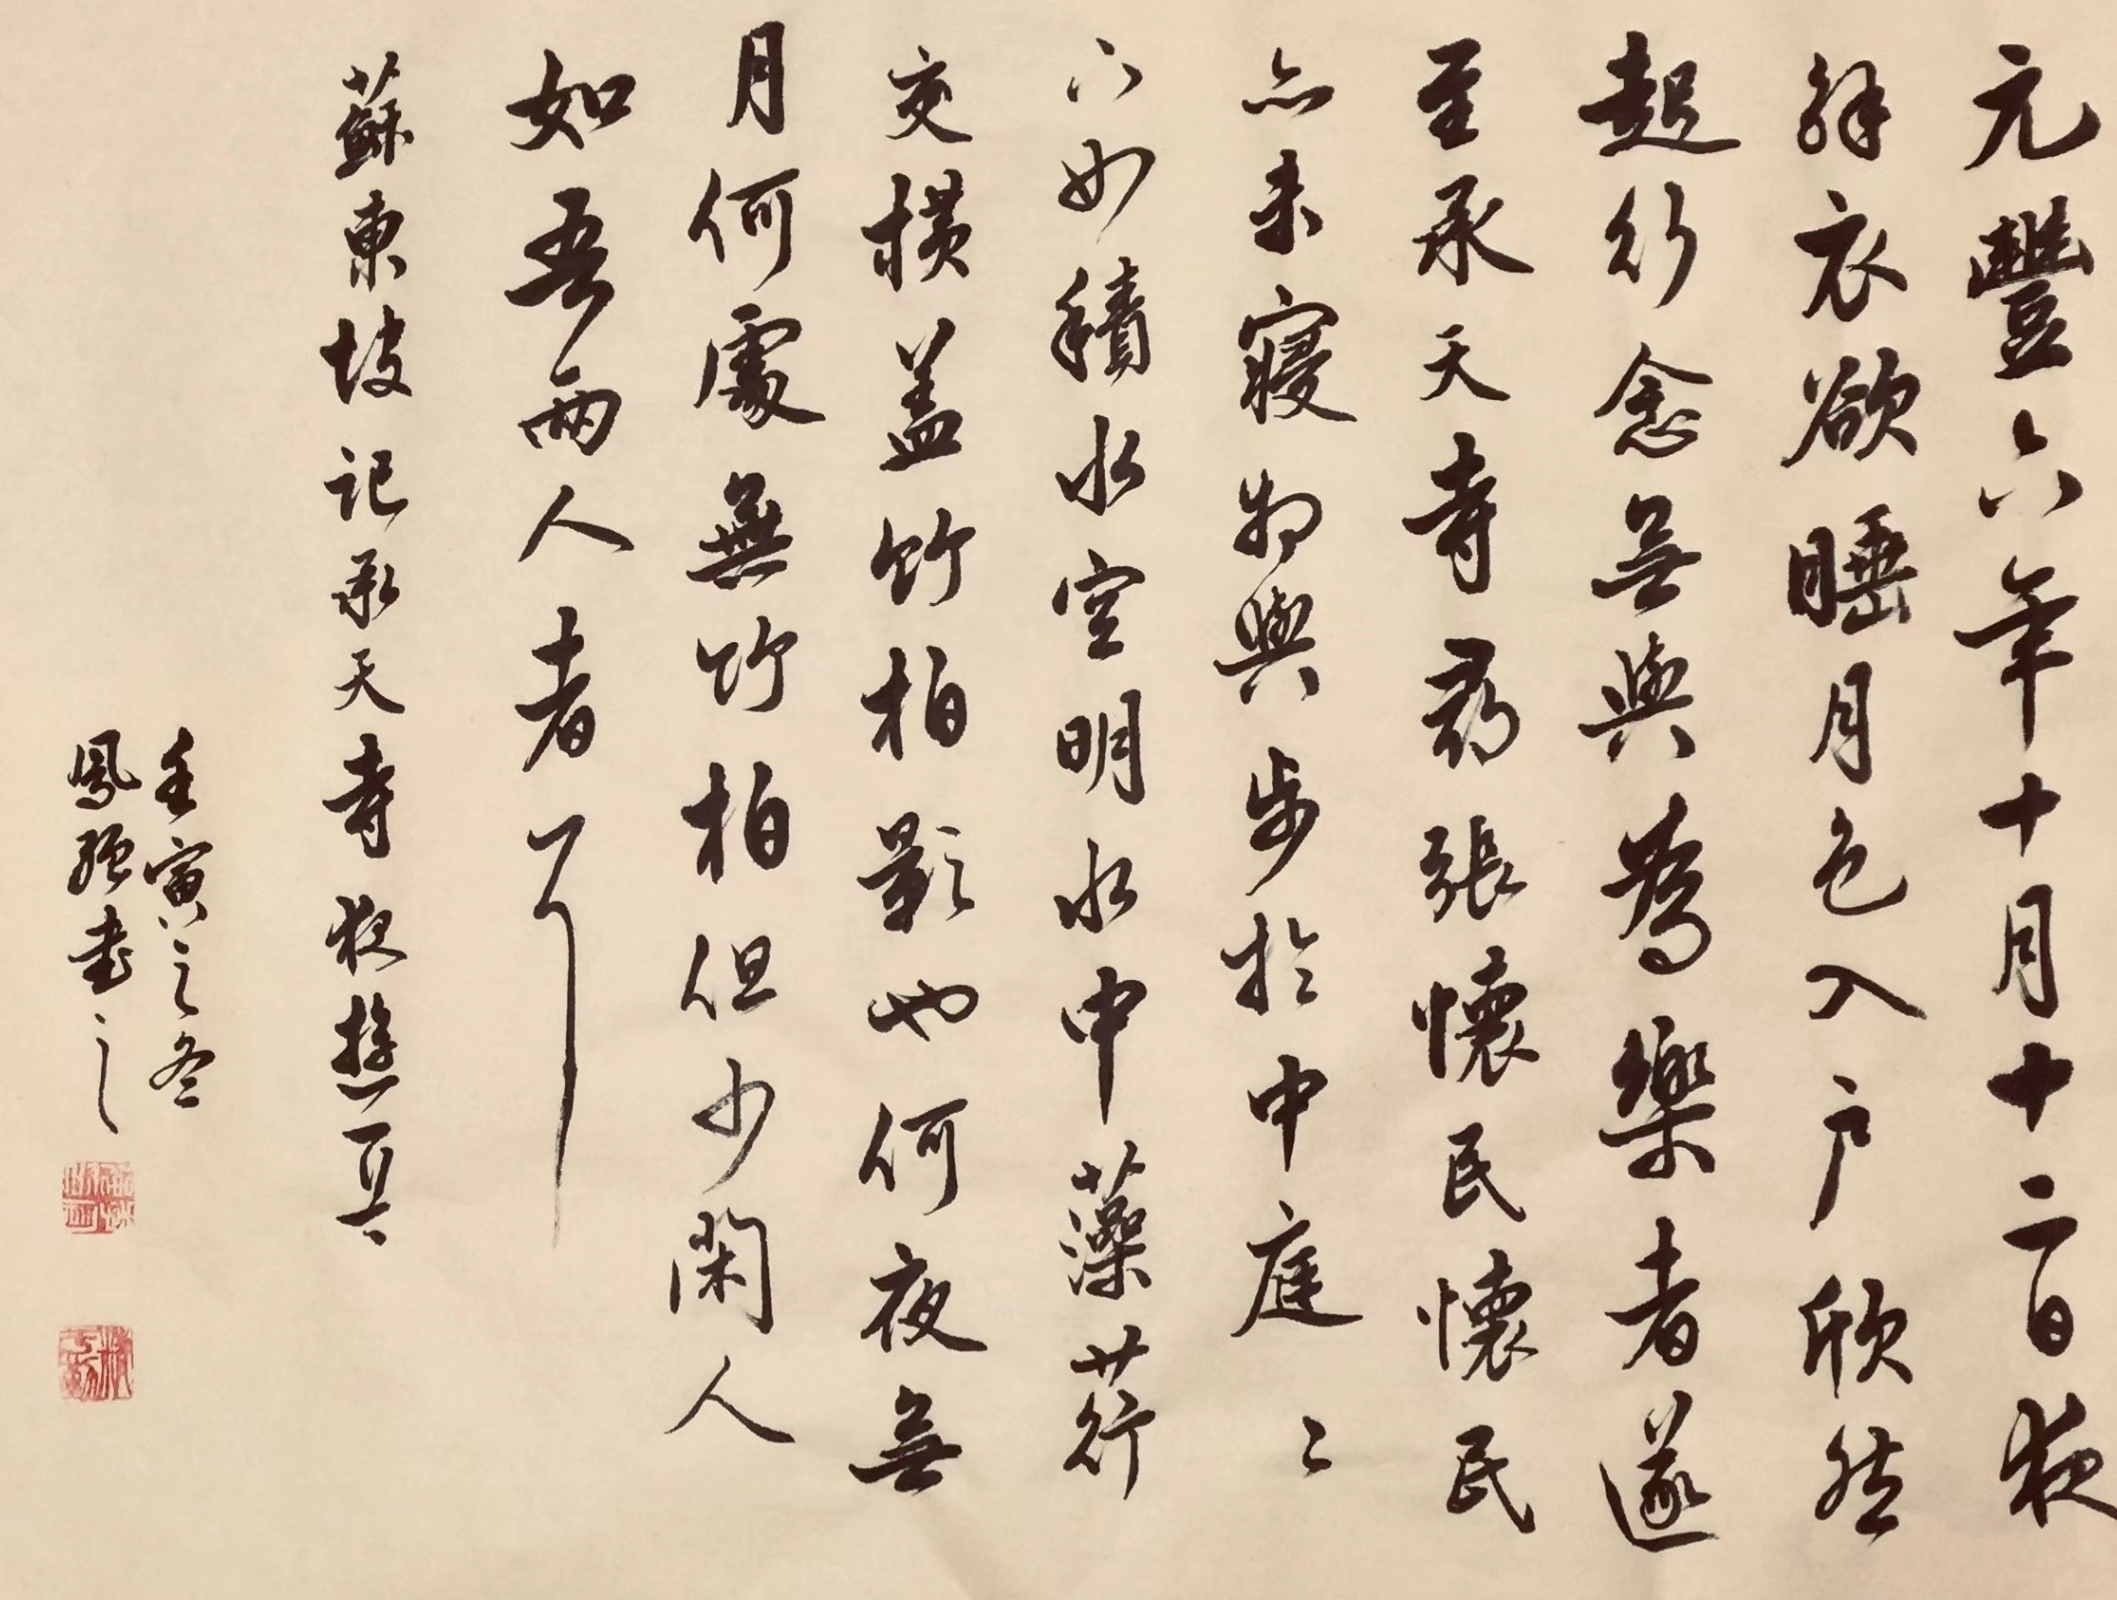 元豐六年十月十二日夜
解衣欲睡月色入户欣然
起行念無與為樂者遂
至承天寺尋張懷民懷民
亦未寢相與步於中庭〻
下如積水空明水中藻荇
交橫盖竹柏影也何夜無
月何處無竹柏但少閑人
如吾兩人者耳
蘇東坡記承天寺夜遊一頁
壬寅之冬
鳳強書之